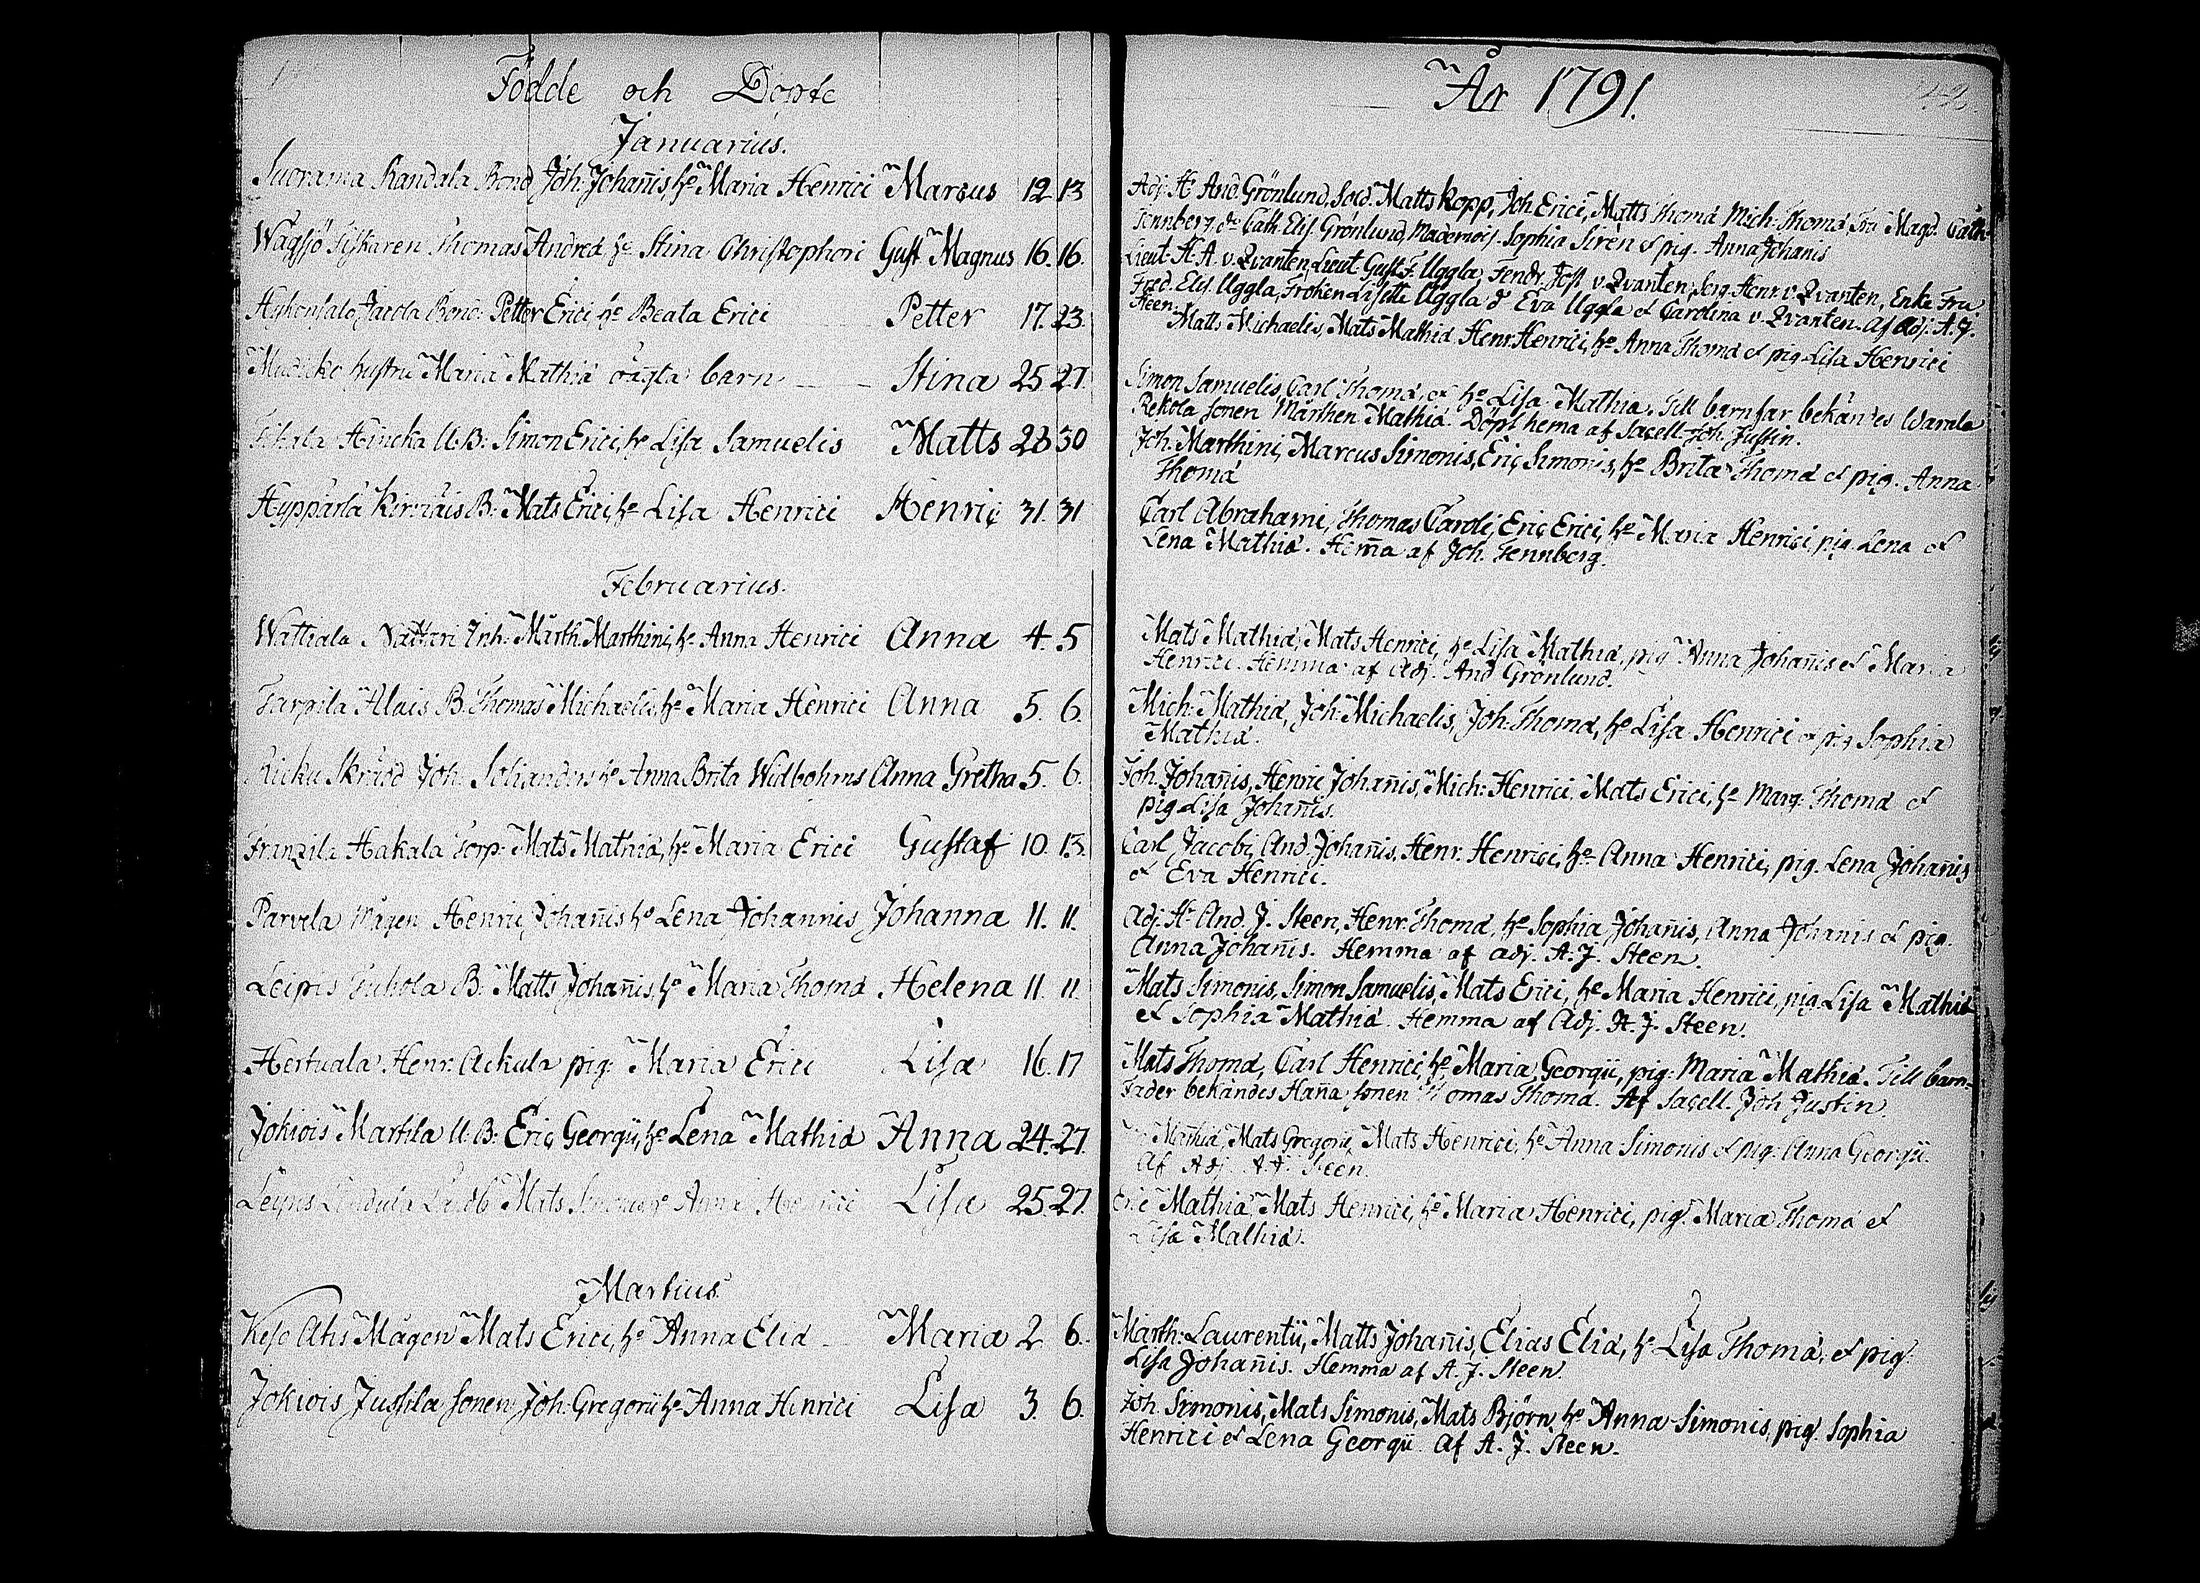 Födde och Döpte
Januarius.
Suorama Randala Bond Joh: Johañis, h:o Maria Henrici Marcus 12 13
Wägsjö Fiskaren Thomas Andreæ h:o Stina Christophori Gust Magnus 16. 16.
Hyhonsalo Jacola Bond: Petter Erici h:o Beata Erici Petter 17. 23.
hustru Maria Mathiæ oägta barn Stina 25 27.
Hincka U.B: Simon Erici, h:o Lisa Samuelis Matts 28 30
Hyppärlä B: Mats Erici, h:o Lisa Henrici Henric 31. 31
Februarius.
Wattiala Inh: Mårth: Marthini, h:o Anna Henrici Anna 4. 5
Tarpila Alais B. Thomas Michaelis, h:o Maria Henrici Anna 5. 6.
Ricku Skrädd Joh: h:o Anna Brita Widbohms Anna Gretha 5. 6.
Franzila Hakala Torp: Mats Mathiæ, h:o Maria Erici Gustaf 10 13.
Parvela Mågen Henric Johañis h:o Lena Johannis Johanna 11. 11.
Leipis B. Matts Johañis, h:o Maria Thomæ Helena 11. 11.
Hertuala Henr: Ackula pig: Maria Erici Lisa 16. 17
Jokiois Martila U.B: Eric Georgii, h:o Lena Mathiæ Anna 24. 27.
Mats h:o Anna Henrici Lisa 25. 27.
Martius
Keso Ahis Mågen Mats Erici, h:o Anna Eliæ Maria 2 6.
Jokiois Jussila Sonen Joh: Gregorii h:o Anna Henrici Lisa 3. 6.
År 1791.
Adj: H:r And: Grönlund, Sold: Matts Kopp, Joh Erici, Matts Thomæ Mich: Thomæ, Fru Magd: Cath:
Tennberg, d:o Cath. Elis. Grönlund, Mademois. Sophia Sirèn & pig. Anna Johanis
Lieut: H: A. v. Qvanten, Lieut: Gust. F. Uggla, Fendr. Jost v. Qvanten, Serg. Henr. v. Qvanten, Enke Fru
Fred. Elis. Uggla, Fröken Lisette Uggla & Eva Uggla et Carolina v. Qvanten. Af Adj: A. J.
Steen.
Matts Michaelis, Mats Mathiæ Henr: Henrici, h:o Anna Thomæ et pig Lisa Henrici
Simon Samuelis, Carl Thomæ, et h:o Lisa Mathiæ. Till barnfar bekändes Warala
Rekola Sonen Mårthen Mathiæ. Döpt hema af Sacell. Joh: Justin.
Joh: Marthini, Marcus Simonis, Eric Simonis, h:o Brita Thomæ et pig. Anna
Thomæ
Carl Abrahami, Thomas Caroli, Eric Erici, h:o Maria Henrici, pig. Lena et
Lena Mathiæ. Hem̄a af Joh. Tennberg.
Mats Mathiæ, Mats Henrici, h:o Lisa Mathiæ, pig: Anna Johañis et Maria
Henrici. Hemma af Adj. And Grönlund.
Mich: Mathiæ, Joh: Michaelis, Joh: Thomæ, h:o Lisa Henrici et pig Sophia
Mathiæ.
Joh: Johañis, Henric Johañis, Mich: Henrici, Mats Erici, h:o Marg: Thomæ et
pig Lisa Johañis.
Carl Jacobi, And. Johañis, Henr. Henrici, h:o Anna Henrici, pig. Lena Johañis
et Eva Henrici.
Adj: H:r And. J. Steen, Henr: Thomæ, h:o Sophia Johañis, Anna Johanis et pig.
Anna Johañis. Hemma af adj. A. J. Steen.
Mats Simonis, Simon Samuelis, Mats Erici, h:o Maria Henrici, pig Lisa Mathiæ
et Sophia Mathiæ. Hemma af Adj. A. J. Steen.
Mats Thomæ, Carl Henrici, h:o Maria Georgii, pig: Maria Mathiæ. Till barn-
fader bekändes Hañа Sonen Thomas Thomæ. Af Sacell. Joh Justin
Mathiæ, Mats Gregorii, Mats Henrici, h:o Anna Simonis et pig: Anna Georgii.
Af Adj. A. J. Steen.
Eric Mathiæ, Mats Henrici, h:o Maria Henrici, pig: Maria Thomæ et
Lisa Mathiæ.
Marth: Laurentii, Matts Johañis, Elias Eliæ, h:o Lisa Thomæ, et pig:
Lisa Johañis. Hemma af A. J. Steen.
Joh. Simonis, Mats Simonis, Mats Björn, h:o Anna Simonis, pig: Sophia
Henrici et Lena Georgii. Af A. J. Steen.